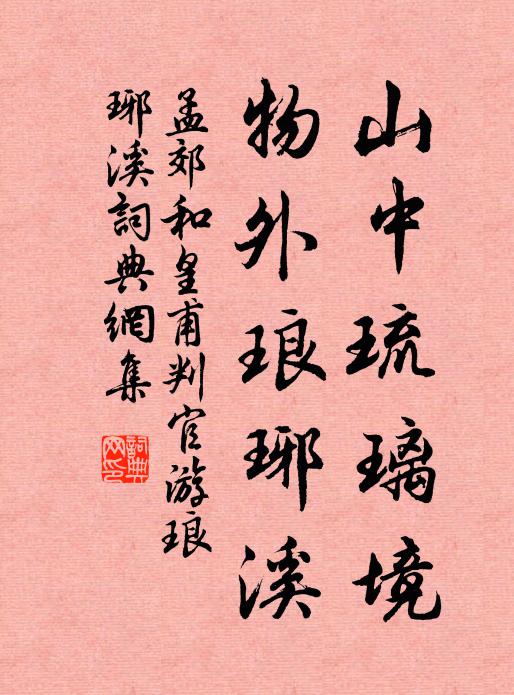 山中琉璃境
物外琅琊溪
孟郊和皇甫判官游琅
琊溪詞典網集
詞典
网印